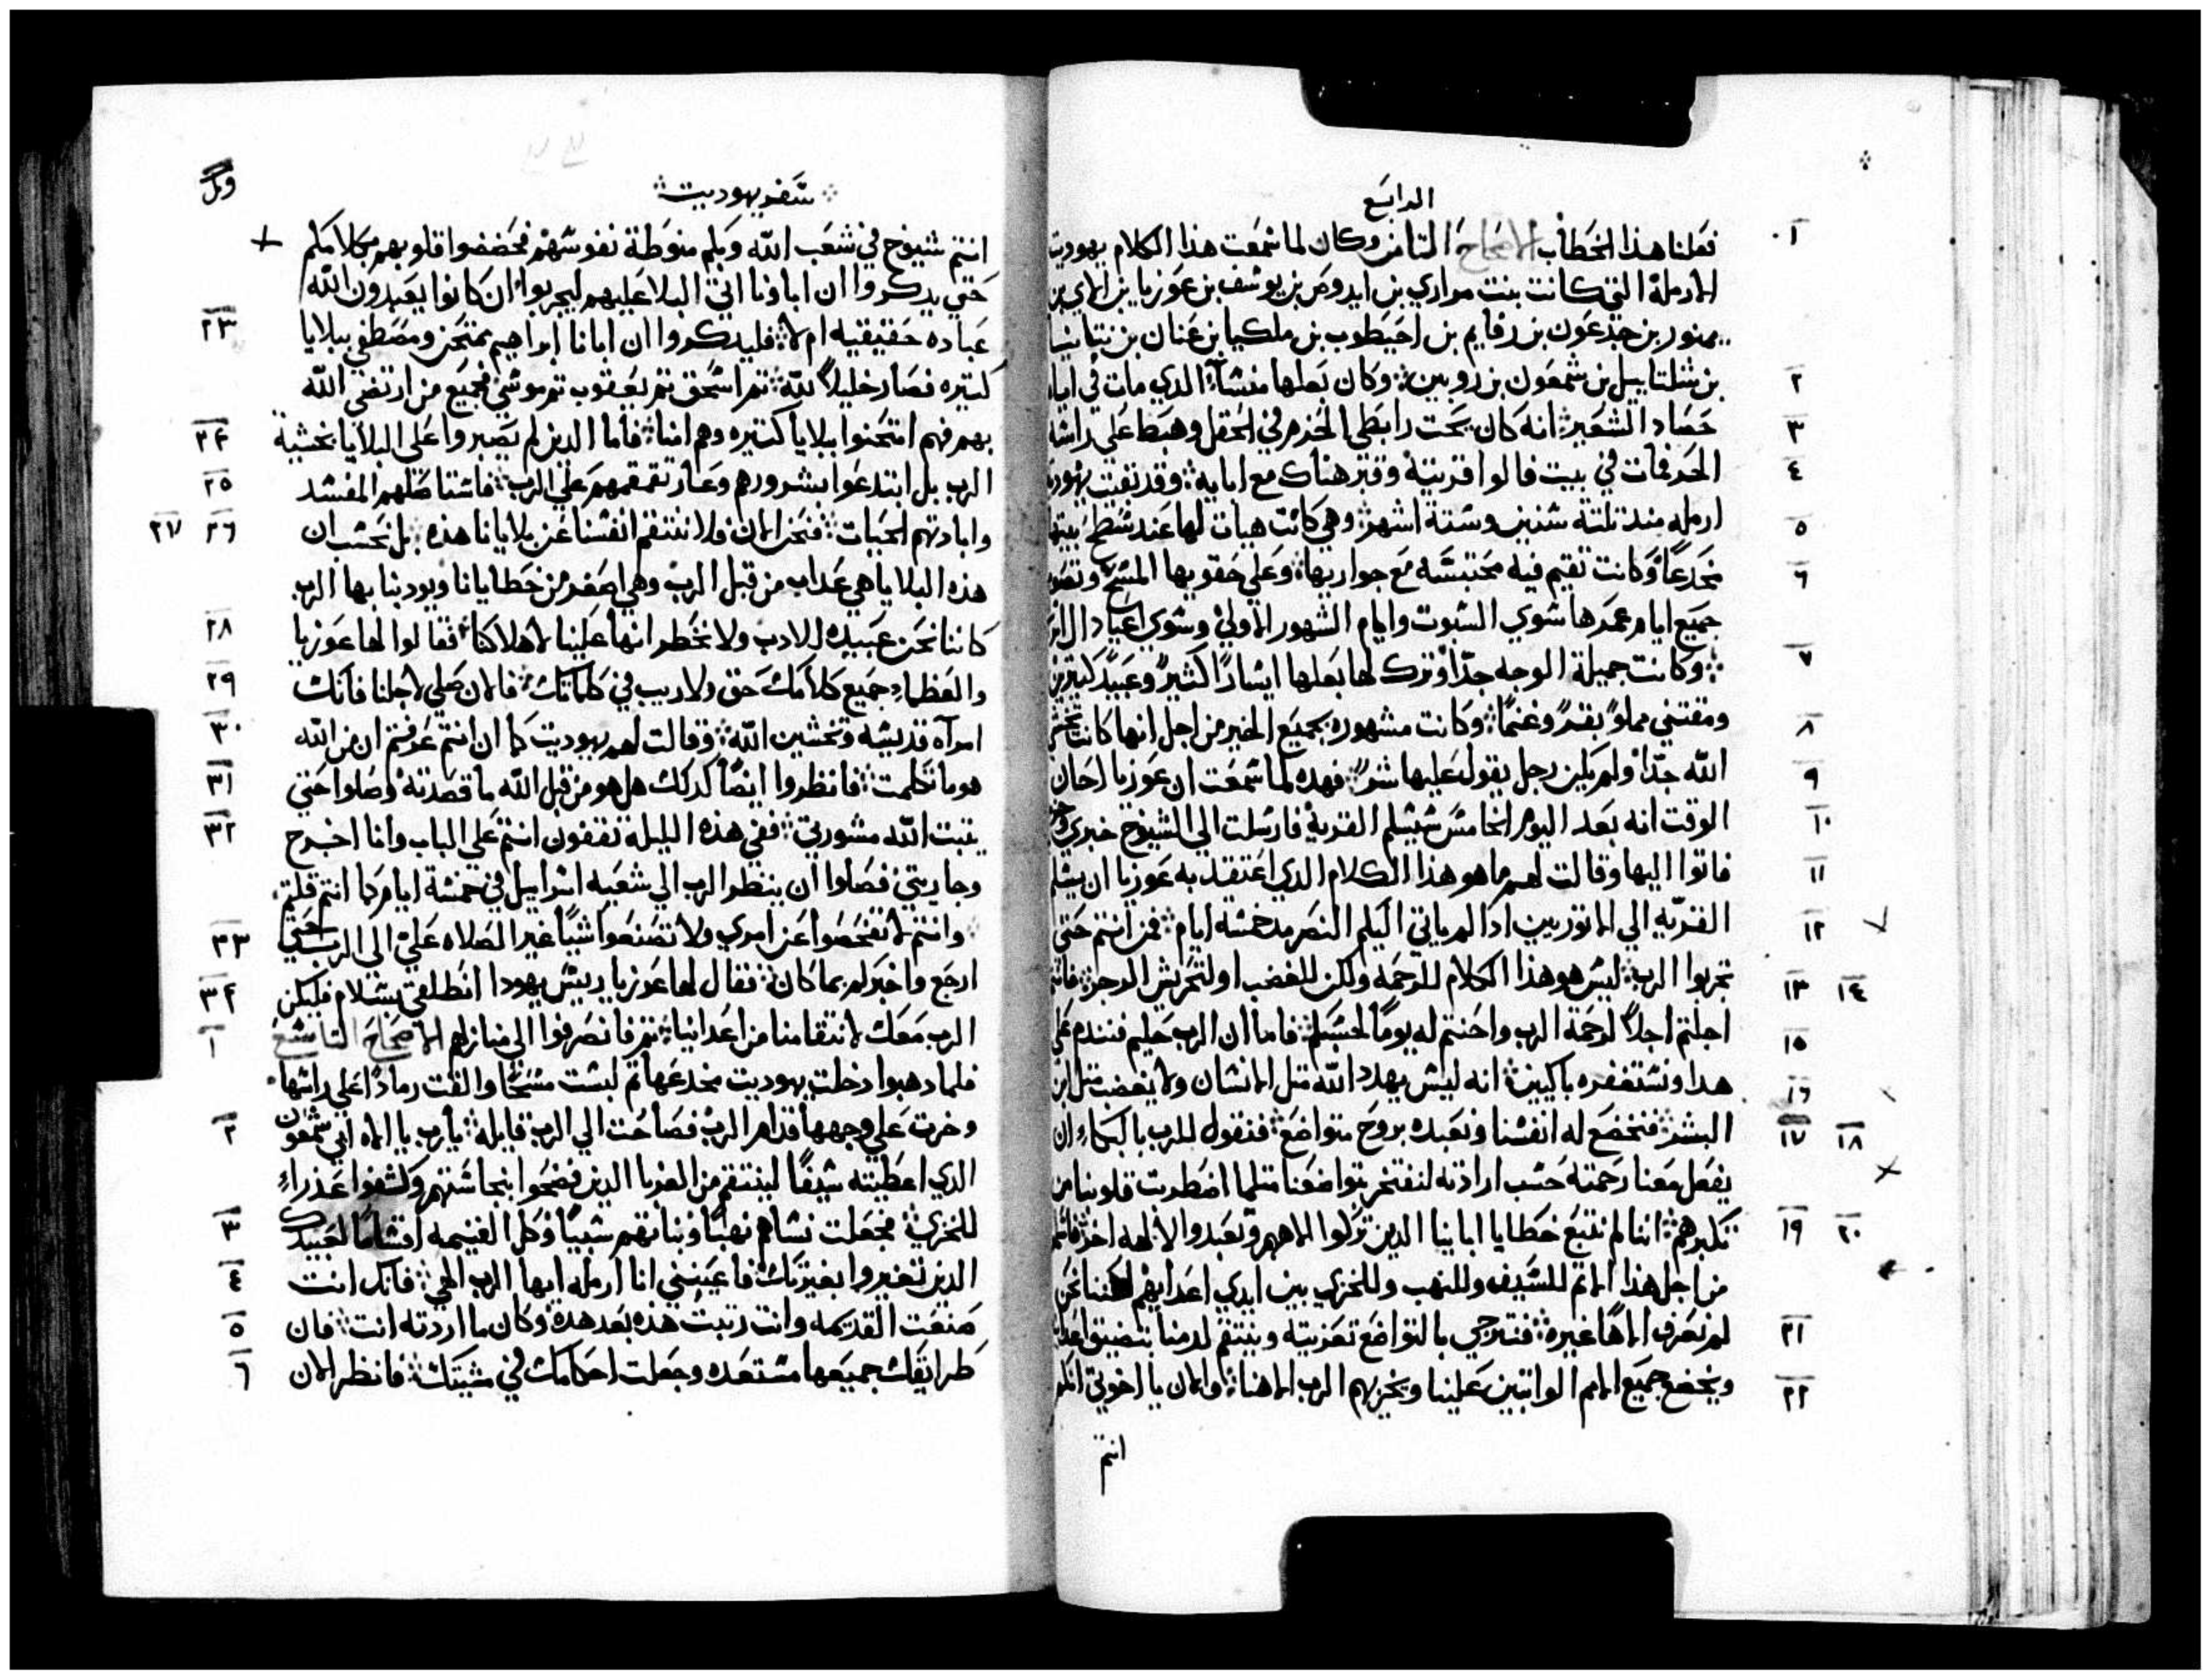 الرابع
١ فعلنا هذا الخطأ: الاصحاح الثامن وكان لما سمعت هذا الكلام يهوديت
الارملة التي كانت بنت مراري بن ايدوص بن يوسف بن عوزيا بن الاي بن
يمنور بن جدعون بن رفايم بن احيطوب بن ملكيا بن عنان بن نتانيا
٢ بن شلتاييل بن شمعون بن روبين: وكان بعلها منشأ الدي مات في ايام
٣ حصاد الشعير: انه كان يحث رابطي الحزم في الحقل وهبط على راسه
٤ الحر فمات في بيت فالوا قريته وقبر هناك مع ابايه: وقد بقيت يهوديت
٥ ارمله مند تلتة سنين وستة اشهر: وهي كانت هيات لها عند سطح بيتها
٦ مخدعاً وكانت تقيم فيه محتبسه مع جواريها: وعلي حقويها المسح وتصوم
جميع ايام عمرها سوي السبوت وايام الشهور الاولي وسوي اعياد ال اسرا
٧ وكانت جميلة الوجه جداً وترك لها بعلها ايساراً كثيرً وعبيدً كتيرين
٨ ومقتني مملوً بقرً وغنماً: وكانت مشهوره بجميع الخير من اجل انها كانت تخشي
٩ الله جداً ولم يكن رجل يقول عليها شرً: فهده لما سمعت ان عوزيا احان
١٠ الوقت انه بعد اليوم الخامس سيسلم القرية فارسلت الي الشيوخ خبري
١١ فاتوا اليها وقالت لهم ما هو هذا الكلام الدي اعتقد به عوزيا ان يسلم
١٢ القريه الي الاتوريين ادا لم ياتي اليكم النصر مد خمسه ايام: فمن انتم حتي
١٣ ١٤ تجربوا الرب: ليس هو هذا الكلام للرحمة ولكن للغضب اولتحريش الرجز: فانتم
اجلتم اجلاً لرحمة الرب واحنتم له يوماً لحسبكم: فاما ان الرب حليم فنندم علي
١٥ هدا ونستغفره باكيين: انه ليس يهدد الله متل الانسان ولا يغضب متل ابن
١٦ ١٧ ١٨ البشر: فنخضع له انفسنا ونعبده بروح متواضع: فنقول للرب بالبكاء ان
يفعل معنا رحمته حسب ارادته لنفتخر بتواضعنا متلما اضطربت قلوبنا من
١٩ ٢٠ تكبرهم: اننا لم نتبع خطايا ابايينا الدين تركوا الاههم وتعبدوا لالهه اخر: فانهم
من اجل هذا الاتم للسيف وللنهب وللخزي بين ايدي اعدايهم لكننا نحن
٢١ لم نعرف الاهاً غيره: فنترجي بالتواضع تعزيته وينتقم لدمنا بتضييق اعداينا
٢٢ ويخضع جميع الامم الواتبين علينا ويخزيهم الرب الاهنا: والان يا اخوتي انكم
انتم
سفر يهوديت
انتم شيوخ في شعب الله وبكم منوطة نفوسهم فخضضوا قلوبهم بكلامكم
حتي يدكروا ان اباونا اتي البلا عليهم ليجربوا ان كانوا يعبدون الله
٢٣ عباده حقيقيه ام لا: فليدكروا ان ابانا ابراهيم يمتحن ومصطفي ببلايا
كتيره فصار خليلاً لله: تم اسحق تم يعقوب تم موسي فجميع من ارتضي الله
٢٤ بهم فهم امتحنوا ببلايا كتيره وهم امنا: فاما الدين لم يصبروا علي البلايا بخشية
٢٥ الرب بل ابتدعوا بشرورهم وعار تقمقمهم علي الرب: فاستاصلهم المفسد
٢٦ ٢٧ وابادتهم الحيات: فنحن الان فلا ننتقم انفسنا عن بلايانا هذه: بل نحسب ان
هذه البلايا هي عداب من قبل الرب وهي اصغر من خطايانا ويودبنا بها الرب
٢٨ كاننا نحن عبيده للادب ولا نخطر انها علينا لاهلاكنا: فقالوا لها عوزيا
٢٩ والعظماء جميع كلامك حق ولا ريب في كلماتك: فالان صلي لاجلنا فانك
٣٠ امرآه قديسه وتخشين الله: وقالت لهم يهوديت كما ان انتم عرفتم ان من الله
٣١ هو ما تكلمت: فانظروا ايضاً كدلك هل هو من قبل الله ما قصدته وصلوا حتي
٣٢ يتبت الله مشورتي: ففي هذه الليله تقفون انتم علي الباب وانا اخرج
وجاريتي فصلوا ان ينظر الرب الي شعبه اسراييل في خمسة ايام كما انتم قلتم:
٣٣ وانتم لا تفحصوا عن امري ولا تصنعوا شياً غير الصلاه علي الي الرب حتي
٣٤ ارجع واخبركم بما كان: فقال لها عوزيا رييس يهودا انطلقي بسلام فليكن
١ الرب معك لانتقامنا من اعداينا: تم فانصرفوا الي منازلهم الاصحاح التاسع
فلما دهبوا دخلت يهوديت مخدعها تم لبست مسحاً والقت رماداً علي راسها
٢ وخرت علي وجهها قدام الرب فصاحت الي الرب قايله: يا رب يا الاه ابي شمعون
الدي اعطيته سيفاً لينتقم من الغربا الدين فضحوا بنجاستهم وكشفوا عذراء
٣ للخزي: فجعلت نساهم نهباً وبناتهم سبياً وكل الغنيمه اقساماً لعبيدك
٤ الدين تغيروا بغيرتك فاعينني انا ارمله ايها الرب الهي: فانك انت
٥ صنعت القديمه وانت رتبت هذه بعد هده وكان ما اردته انت: فان
٦ طرايقك جميعها مستعده وجعلت احكامك في مشيتك: فانظر الان